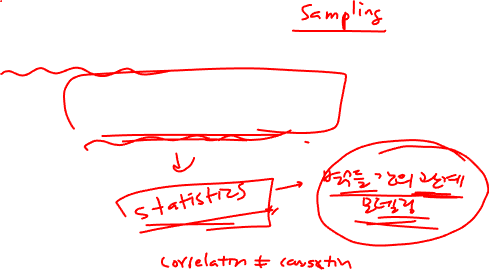 Sampling
statistics
변수들 간의 관계
모델링
correlation ≠ causation